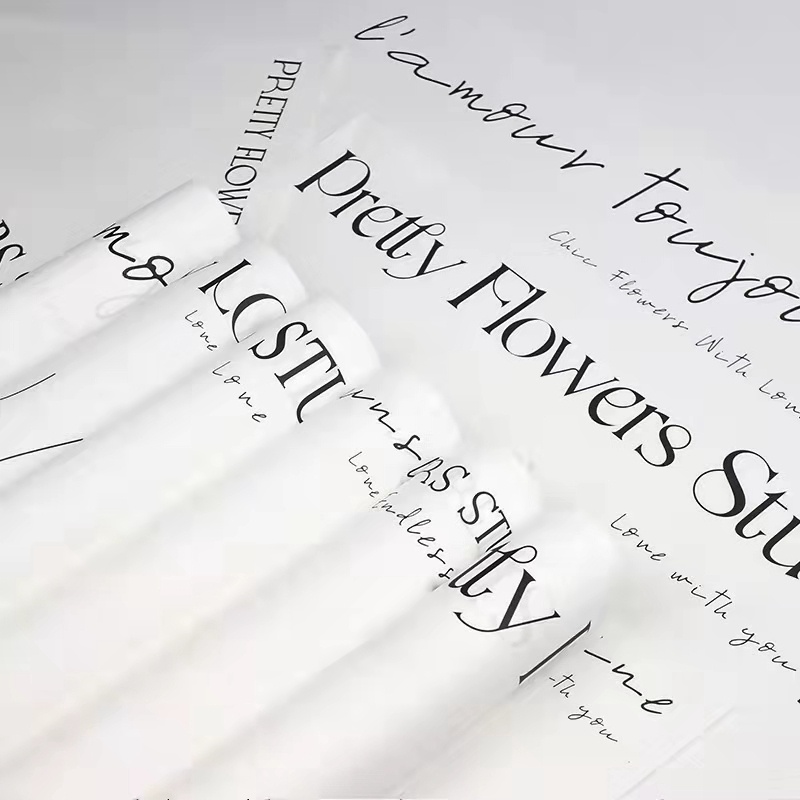 l'amour toujo
PRETTY FLOWE
Pretty Flowers Stu
Chic Flowers With Lov
mo
Love Love
Love with you
Love
Endless
S STU
tty
ne
th you